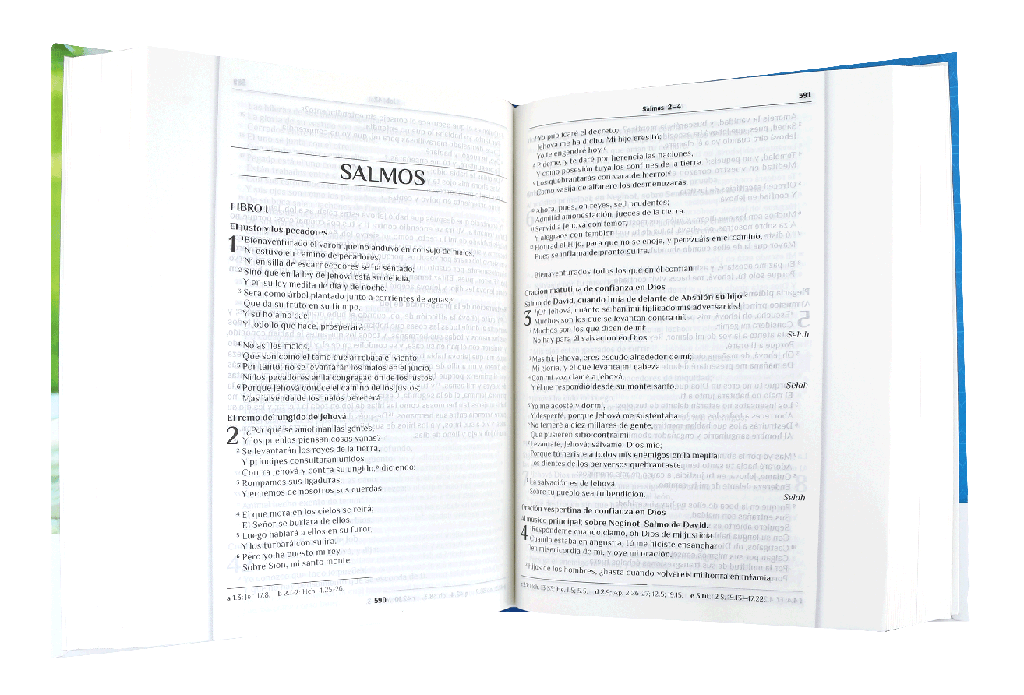 SALMOS
LIBRO I
El justo y los pecadores
1 Bienaventurado el varón que no anduvo en consejo de malos,
Ni estuvo en camino de pecadores,
Ni en silla de escarnecedores se ha sentado;
2 Sino que en la ley de Jehová está su delicia,
Y en su ley medita de día y de noche.
3 Será como árbol plantado junto a corrientes de aguas,
Que da su fruto en su tiempo,
Y su hoja no cae;
Y todo lo que hace, prosperará.
4 No así los malos,
Que son como el tamo que arrebata el viento.
5 Por tanto, no se levantarán los malos en el juicio,
Ni los pecadores en la congregación de los justos.
6 Porque Jehová conoce el camino de los justos;
Mas la senda de los malos perecerá.
El reino del ungido de Jehová
2 ¿Por qué se amotinan las gentes,
Y los pueblos piensan cosas vanas?
2 Se levantarán los reyes de la tierra,
Y príncipes consultarán unidos
Contra Jehová y contra su ungido, diciendo:
3 Rompamos sus ligaduras,
Y echemos de nosotros sus cuerdas.
4 El que mora en los cielos se reirá;
El Señor se burlará de ellos.
5 Luego hablará a ellos en su furor,
Y los turbará con su ira.
6 Pero yo he puesto mi rey
Sobre Sion, mi santo monte.
590
Salmos 2—4
591
7 Yo publicaré el decreto;
Jehová me ha dicho: Mi hijo eres tú;
Yo te engendré hoy.
8 Pídeme, y te daré por herencia las naciones,
Y como posesión tuya los confines de la tierra.
9 Los quebrantarás con vara de hierro;
Como vasija de alfarero los desmenuzarás.
10 Ahora, pues, oh reyes, sed prudentes;
Admitid amonestación, jueces de la tierra.
11 Servid a Jehová con temor,
Y alegraos con temblor.
12 Honrad al Hijo, para que no se enoje, y perezcáis en el camino;
Pues se inflama de pronto su ira.
Bienaventurados todos los que en él confían.
Oración matutina de confianza en Dios
Salmo de David, cuando huía de delante de Absalón su hijo.
3 ¡Oh Jehová, cuánto se han multiplicado mis adversarios!
Muchos son los que se levantan contra mí.
2 Muchos son los que dicen de mí:
No hay para él salvación en Dios.
Selah
3 Mas tú, Jehová, eres escudo alrededor de mí;
Mi gloria, y el que levanta mi cabeza.
4 Con mi voz clamé a Jehová,
Y él me respondió desde su monte santo.
Selah
5 Yo me acosté y dormí,
Y desperté, porque Jehová me sustentaba.
6 No temeré a diez millares de gente,
Que pusieren sitio contra mí.
7 Levántate, Jehová; sálvame, Dios mío;
Porque tú heriste a todos mis enemigos en la mejilla;
Los dientes de los perversos quebrantaste.
8 La salvación es de Jehová;
Sobre tu pueblo sea tu bendición.
Selah
Oración vespertina de confianza en Dios
Al músico principal; sobre Neginot. Salmo de David.
4 Respóndeme cuando clamo, oh Dios de mi justicia.
Cuando estaba en angustia, tú me hiciste ensanchar;
Ten misericordia de mí, y oye mi oración.
2 Hijos de los hombres, ¿hasta cuándo volveréis mi honra en infamia,